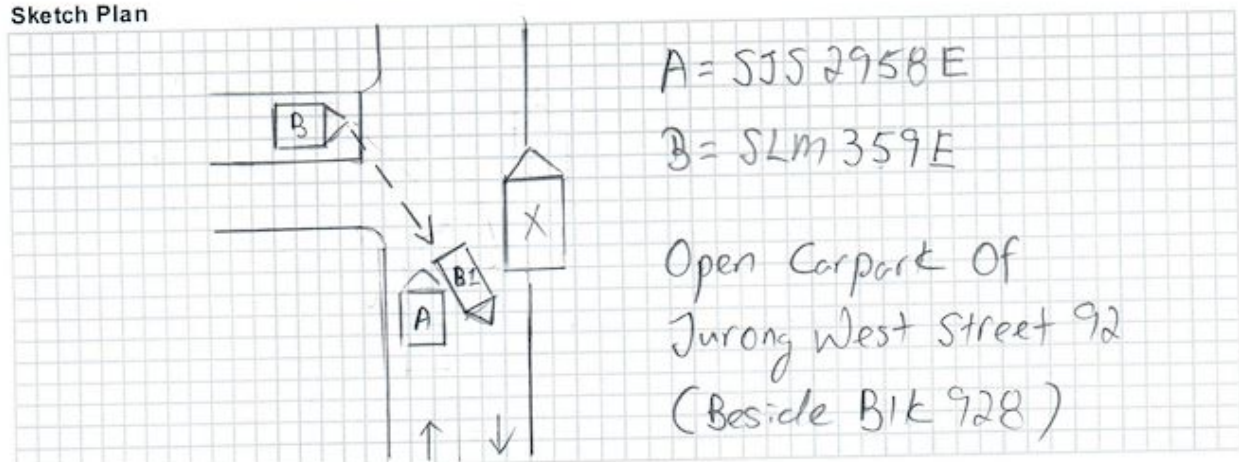 Sketch Plan
A = SJS 2958E
B = SLM 359E
B
X
B1
A
Open Carpark Of
Jurong West Street 92
(Beside Blk 928)